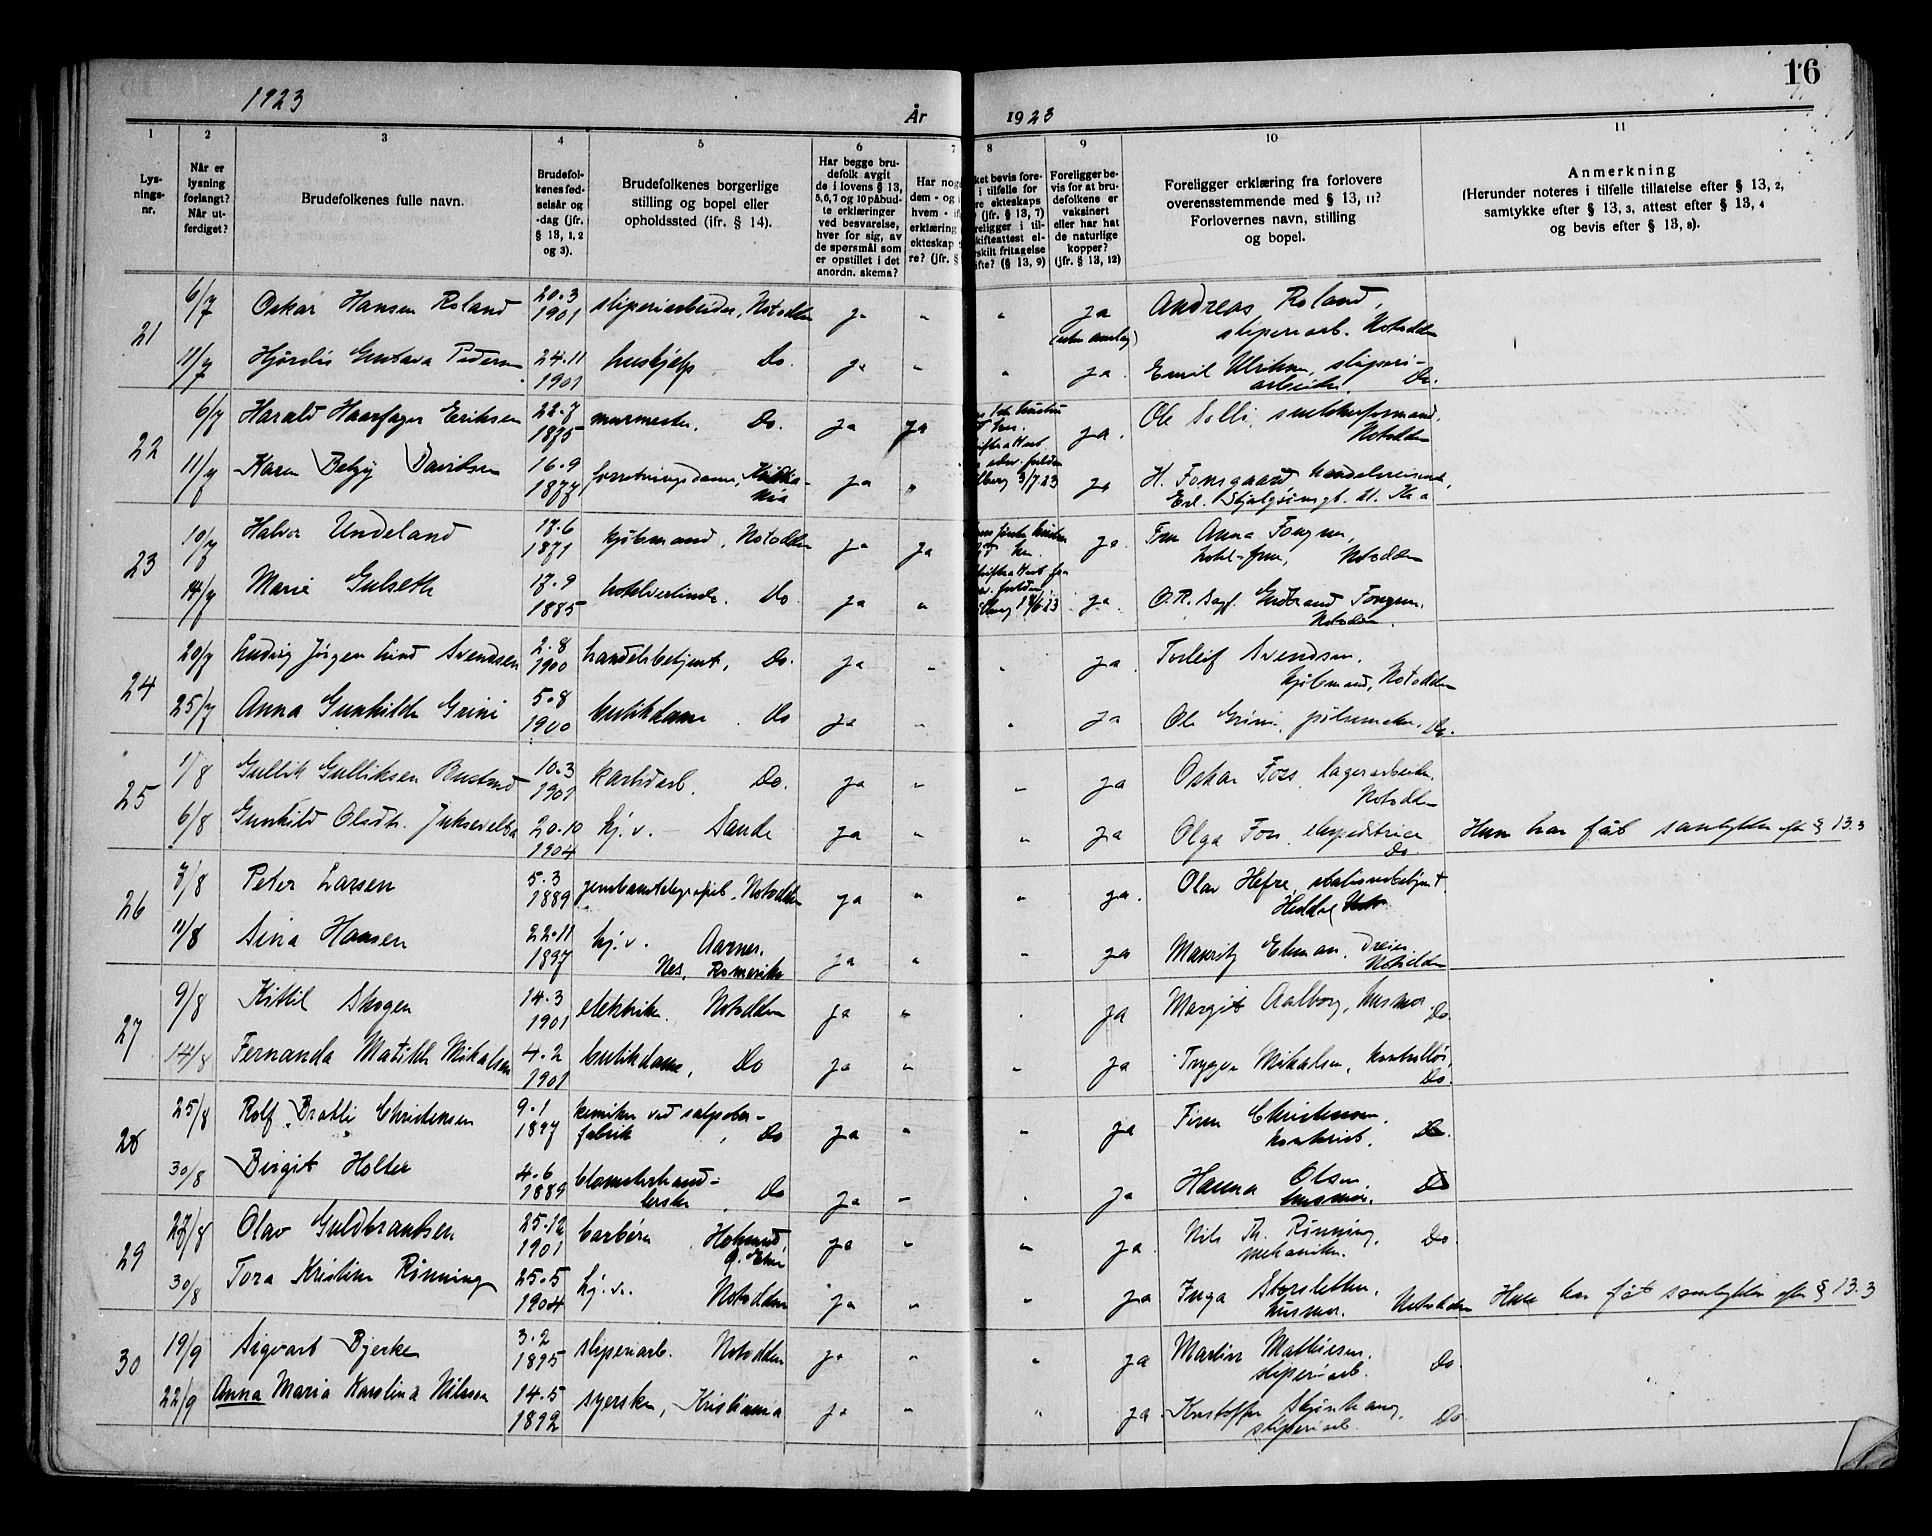 16
1923 År 1923
1 2 3 4 5 6 7 8 9 10 11
Lysnings-nr.
Når er lysning forlangt? Når utferdiget?
Brudefolkenes fulle navn.
Brudefolkenes fødselsår og -dag (jfr. § 13, 1, 2 og 3).
Brudefolkenes borgerlige stilling og bopel eller opholdssted (ifr. § 14).
Har begge brudefolk avgit de i lovens § 13, 5, 6, 7 og 10 påbudte erklæringer ved besvarelse, hver for sig, av de spørsmål som er opstillet i det anordn. skema?
Foreligger bevis for at brudefolkene er vaksinert eller har hat de naturlige kopper? (jfr. § 13, 12)
Foreligger erklæring fra forlovere overensstemmende med § 13, 11? Forlovernes navn, stilling og bopel.
Anmerkning
(Herunder noteres i tilfelle tillatelse efter § 13, 2, samtykke efter § 13, 3, attest efter § 13, 4 og bevis efter § 13, 8).
21 6/7 Oskar Hansen Roland 20.3 1901 sliperiarbeider, Notodden ja " " ja Andreas Roland, sliperiarb. Notodden
11/7 Hjørdis Gustava Pedersen 24.11 1901 huskjelp Do. ja " " ja. Emil Ulriksen, sliperiarbeider. Do.
22 6/7 Harald Haarfager Eriksen 22.7 1875 murmester, Do. ja ja ja. Ole Solli, Notodden
11/7 Karen Betzy Davidsen 16.9 1877 forretningsdame, ja " 3/7 23 ja H. Fonsgaard
23 10/7 Halvor Undeland 17.6 1871 kjøbmand, Notodden ja ja ja Fru Anna Fongen, Notodden
14/7 Marie Gulseth 17.9 1885 hotelvertinde. Do ja " ja. Gudbrand Fongen, Notodden.
24 20/7 Ludvig Jørgen Lund Svendsen 2.8 1900 handelsbetjent, Do. ja " " ja. Torleif Svendsen, kjøbmand, Notodden
25/7 Anna Gunhilde Grini 5.8 1900 butikdame. Do ja " " ja Ole Grini, pølsemaker. Do.
25 1/8 Gullik Gulliksen Bustrud 10.3 1901 karbidarb. Do. ja " " ja Oskar Foss, lagerarbeider. Notodden
6/8 Gunhild Olsdtr. 20.10 1904 hj.v. Sande ja " " ja Olga Foss, ekspeditrice Do Hun har fåt samtykke efter § 13.3
26 7/8 Peter Larsen 5.3 1889 jernbanetelegrafist, Notodden ja " " ja. Olav Hefre, stationsbetjent. Heddal
11/8 Sina Hansen 22.11 1897 hj.v. Aarnes. Nes, Romerike ja " " ja Mauritz Ekman, Dreier. Notodden
27 9/8 Kittil Skogen 14.3 1901 elektriker. Notodden ja " " ja Margit Aalborg, husmor. Do.
14/8 Fernanda Matilde Mikalsen 4.2 1901 butikdame, Do ja " " ja Trygve Mikalsen, kontrollør, Do.
28 25/8 Rolf Bratli Christensen 9.1 1897 kemiker ved salpeterfabrik, Do ja " " ja Finn Christensen, kontorist. Do.
30/8 Birgit Holter 4.6 1889 blomsterhandlerske, Do ja " " ja Hanna Olsen, husmor. Do
29 27/8 Olav Guldbrandsen 25.12 1901 barbér, ja " " ja. Nils Th. Rønning, mekaniker. Do
30/8 Tora Kristine Rønning 25.5 1904 hj.v. Notodden ja " " ja Inga Storsletten, husmor. Notodden Hun har fåt samtykke efter § 13.3
30 19/9 Sigvart Bjerke 3.2 1895 sliperiarb. Notodden ja " " ja Martin Mathiesen. sliperiarb. Do.
22/9 Anna Maria Karolina Nilsson 14.5 1892 syerske, Kristiania ja " " ja. Kristoffer sliperiarb. Do